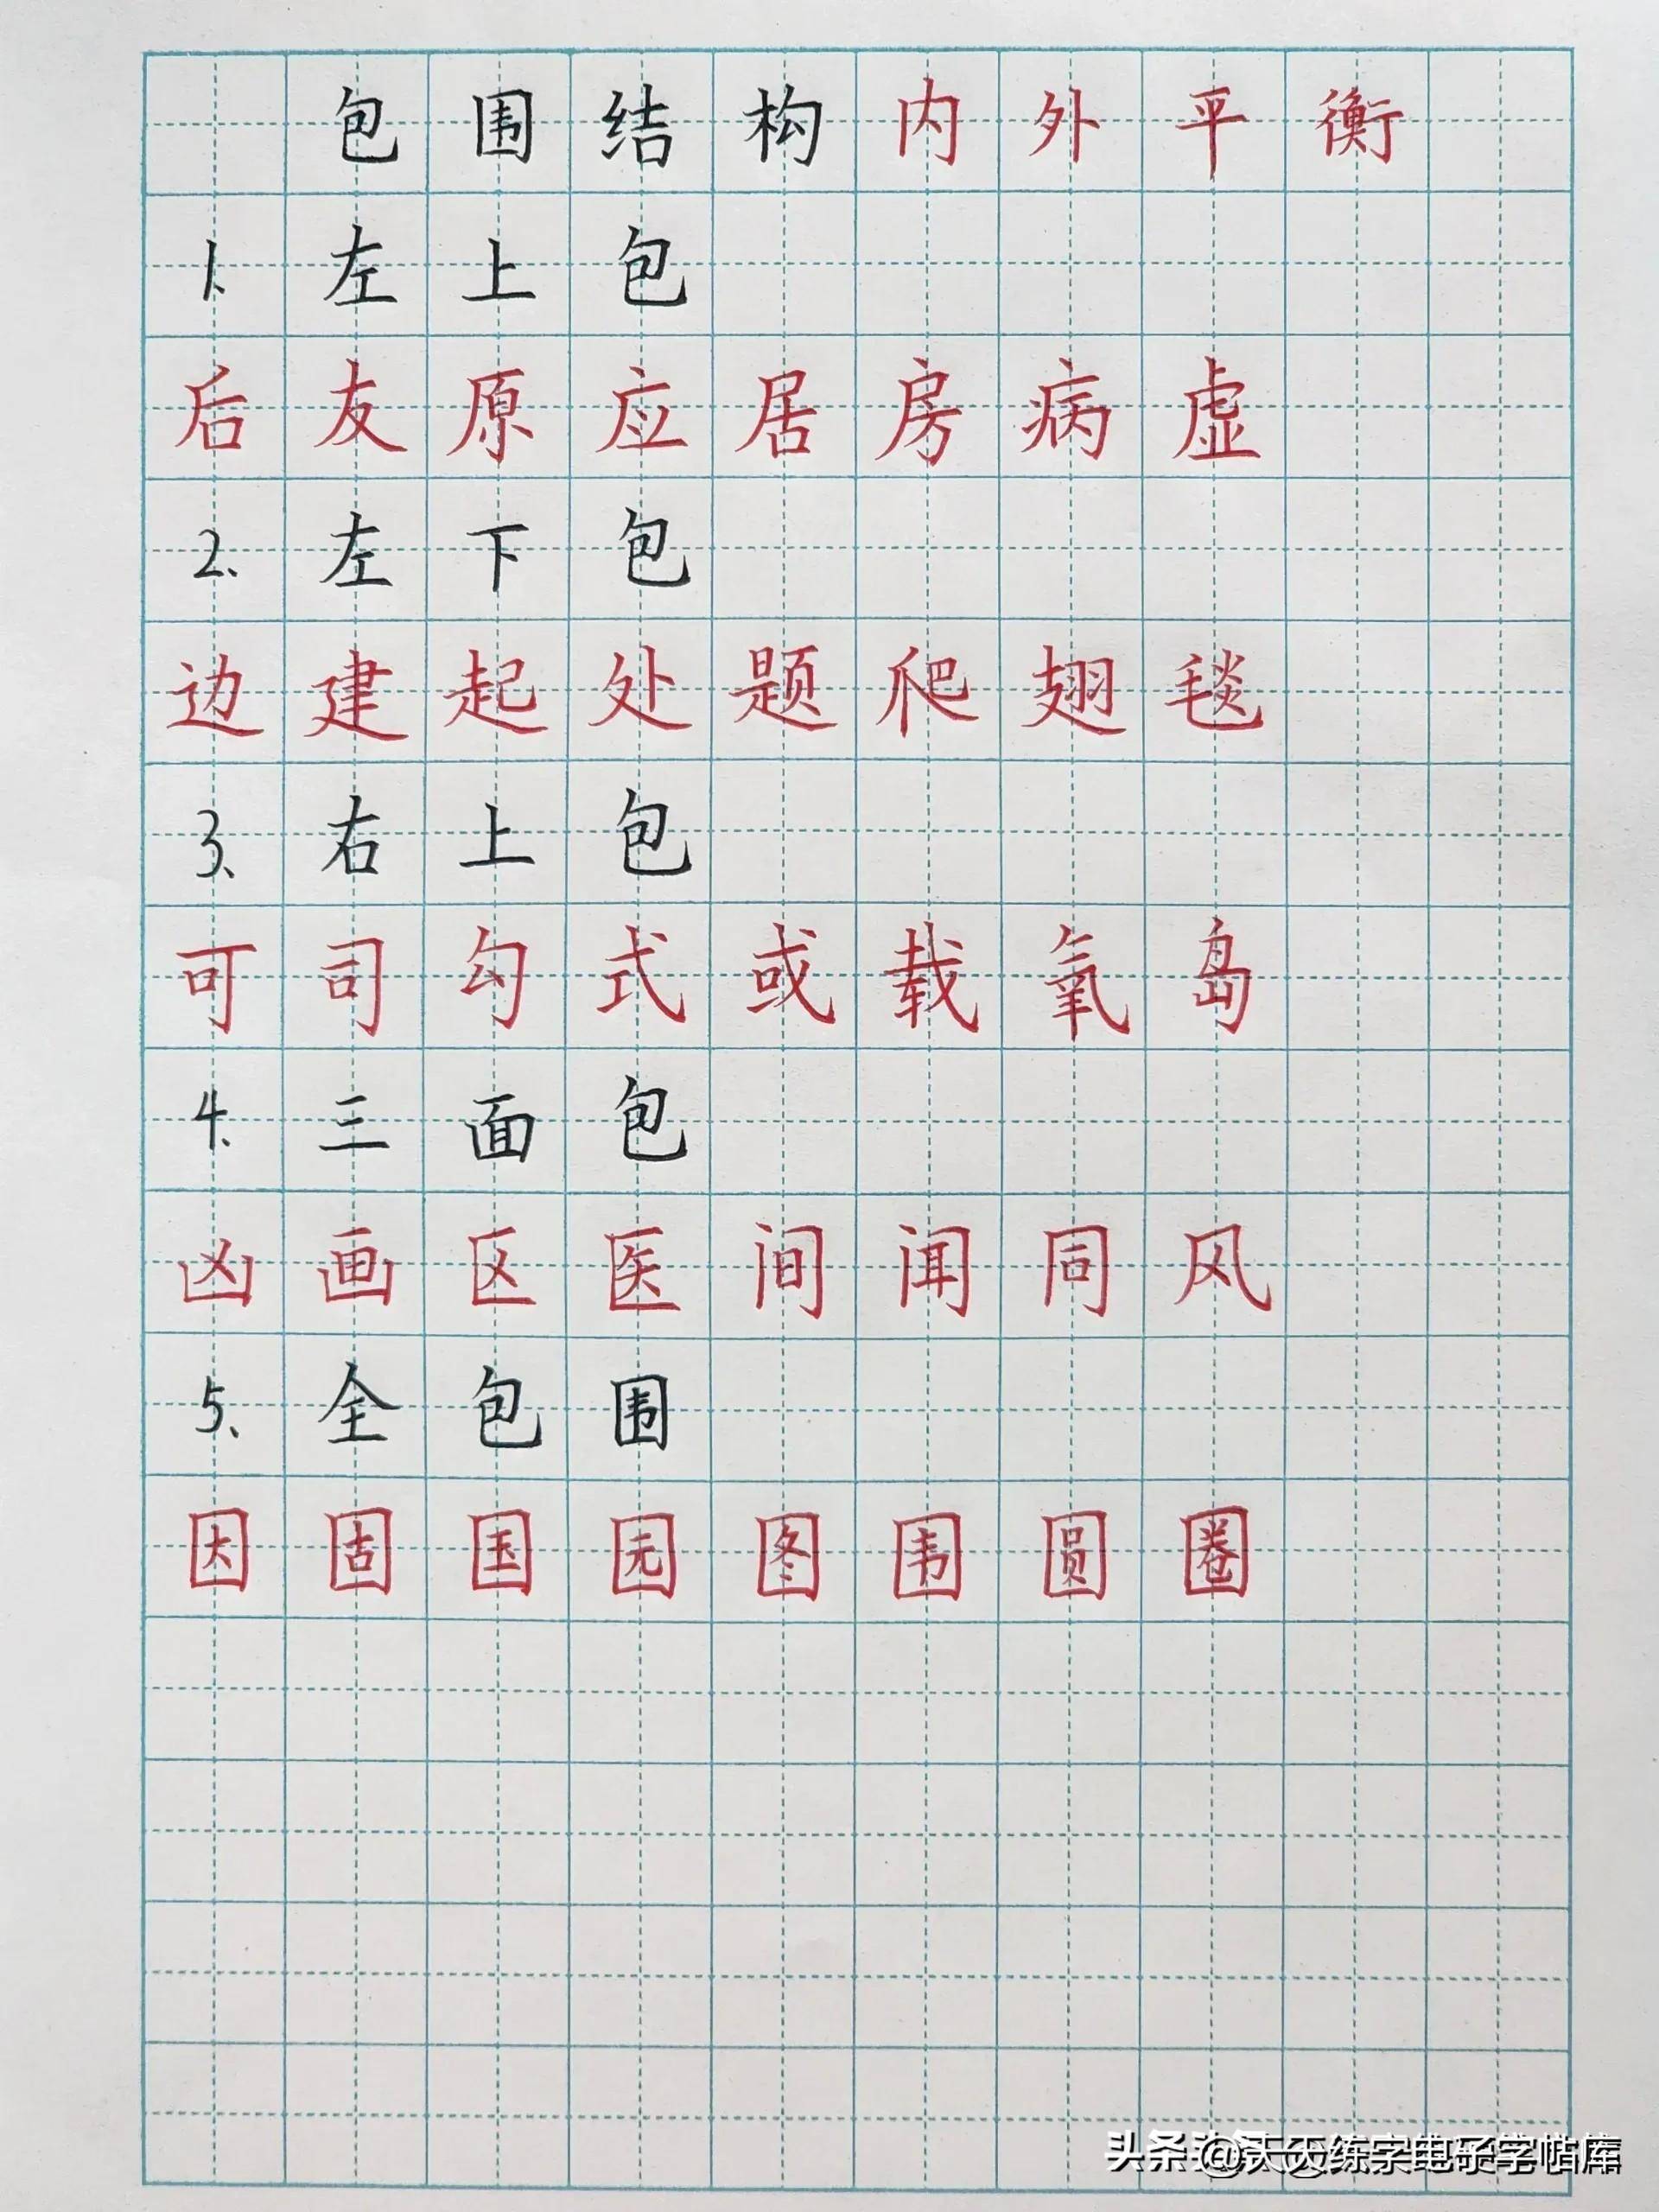 包围结构内外平衡
1.左上包
后友原应居房病虚
2、左下包
边建起处题爬翅毯
3、右上包
可司勾式或载氧岛
4、三面包
凶画区医间闻同风
5、全包围
因固国园图围圆圈
头条 @天天练字电子字帖库